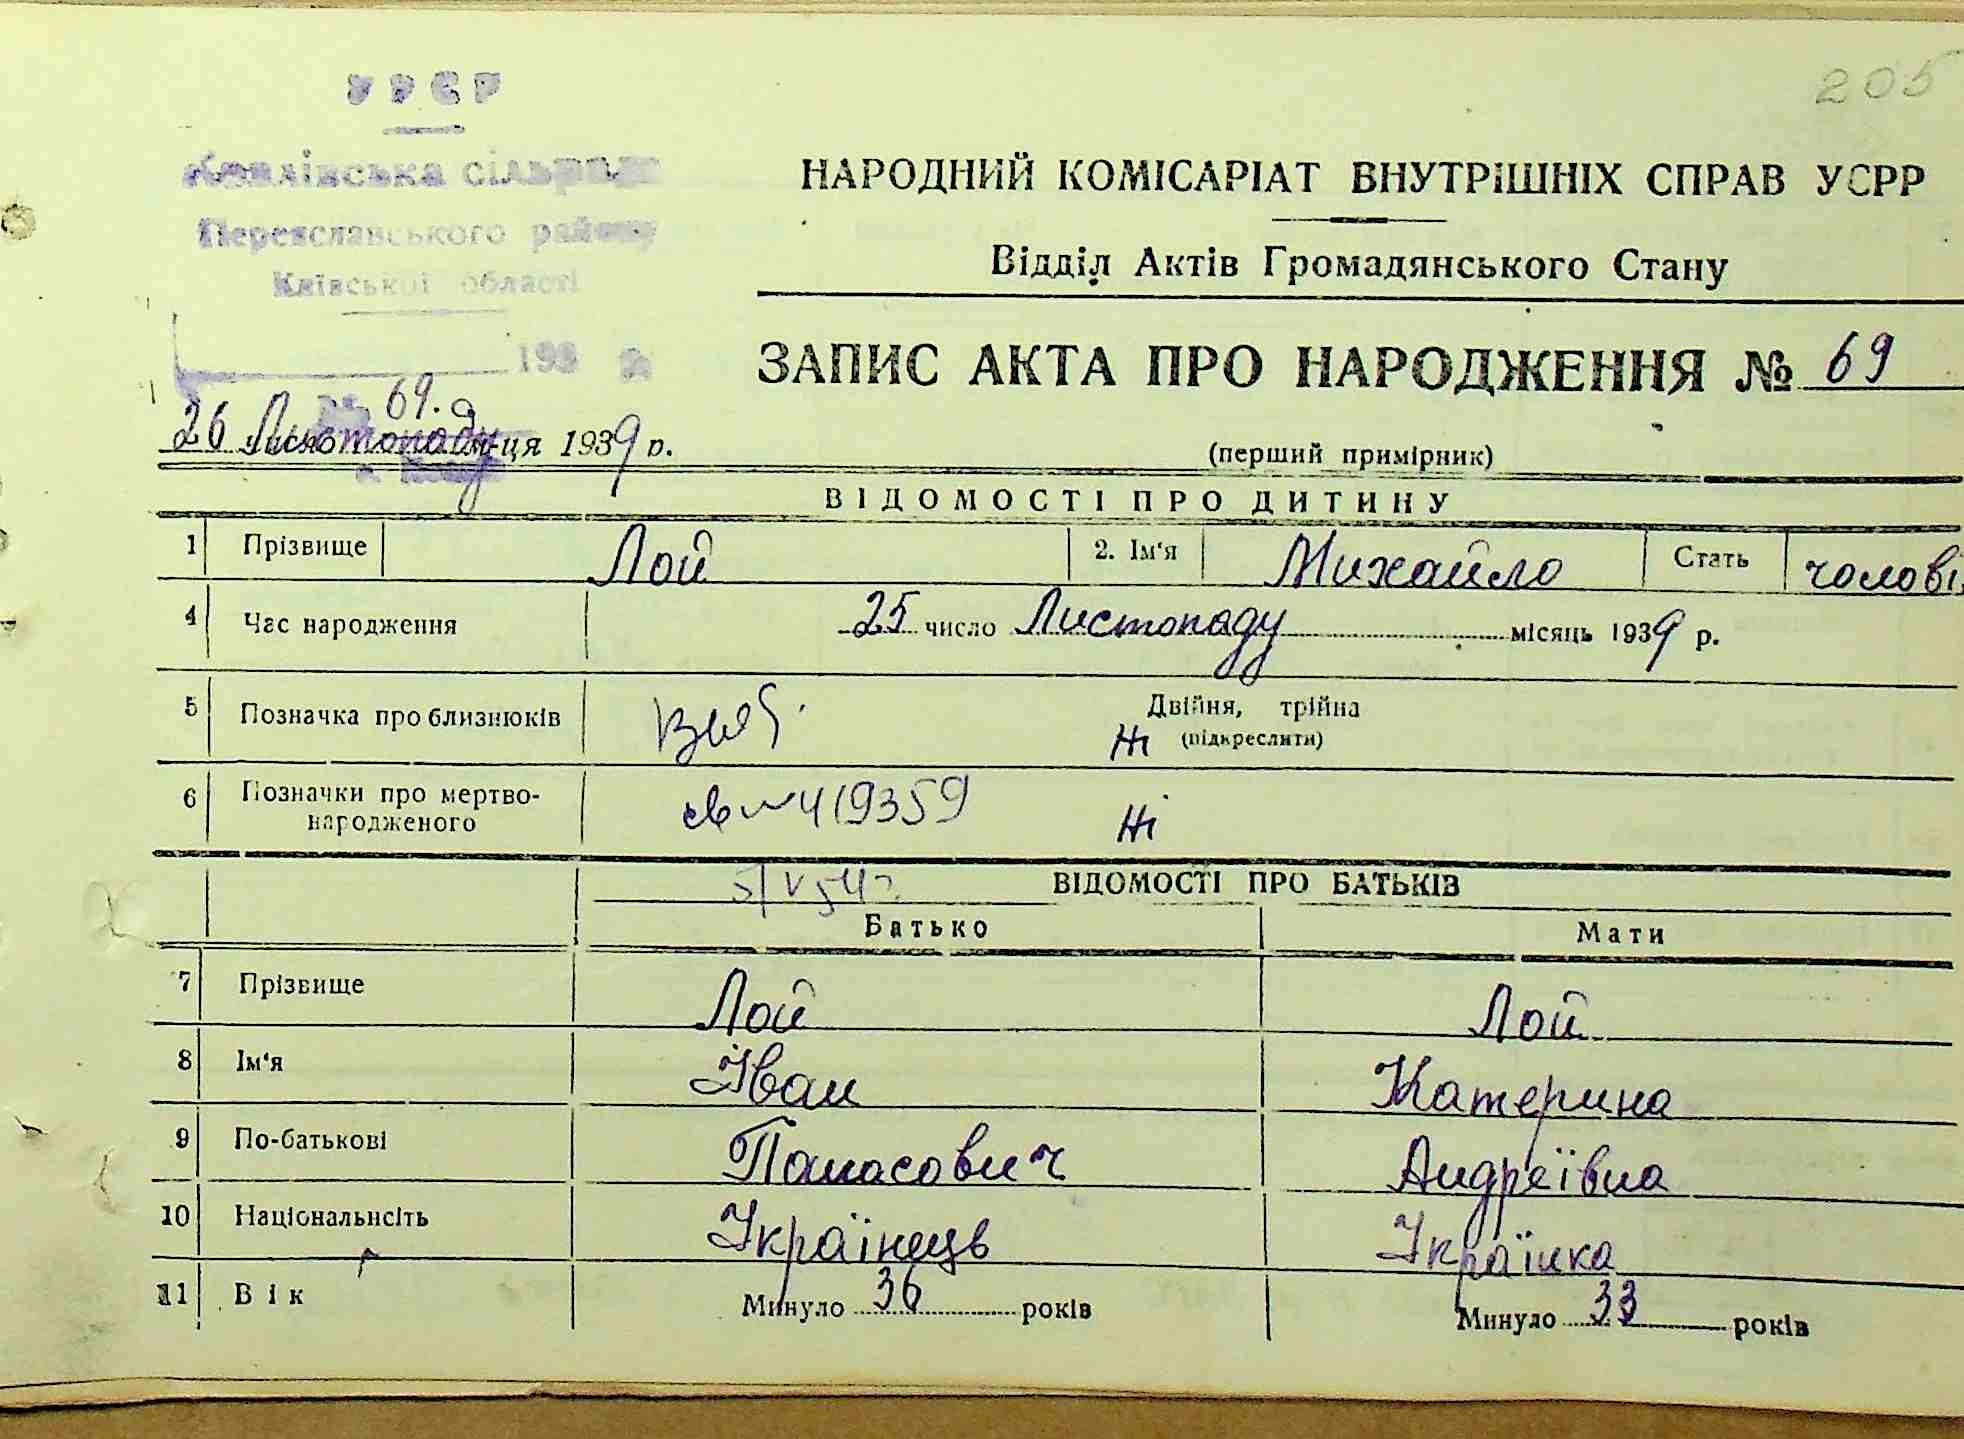 205
УРСР
сільрада
Переяславського району
Київської області
193
НАРОДНИЙ КОМІСАРІАТ ВНУТРІШНІХ СПРАВ УСРР
Відділ Актів Громадянського Стану
ЗАПИС АКТА ПРО НАРОДЖЕННЯ № 69
69.
26 Листопаду м-ця 1939 р.
(перший примірник)
ВІДОМОСТІ ПРО ДИТИНУ
1 Прізвище Лой 2. Ім'я Михайло Стать чолові
4 Час народження 25 число Листопаду місяць 1939 р.
5 Позначка про близнюків Двійня, трійна
Ні (підкреслити)
6 Позначки про мертво-
народженого Ні
5/V 54 г.
ВІДОМОСТІ ПРО БАТЬКІВ
Батько Мати
7 Прізвище Лой Лой
8 Ім'я Іван Катерина
9 По-батькові Панасович Андреївна
10 Національність Українець Українка
11 Вік Минуло 36 років Минуло 33 років